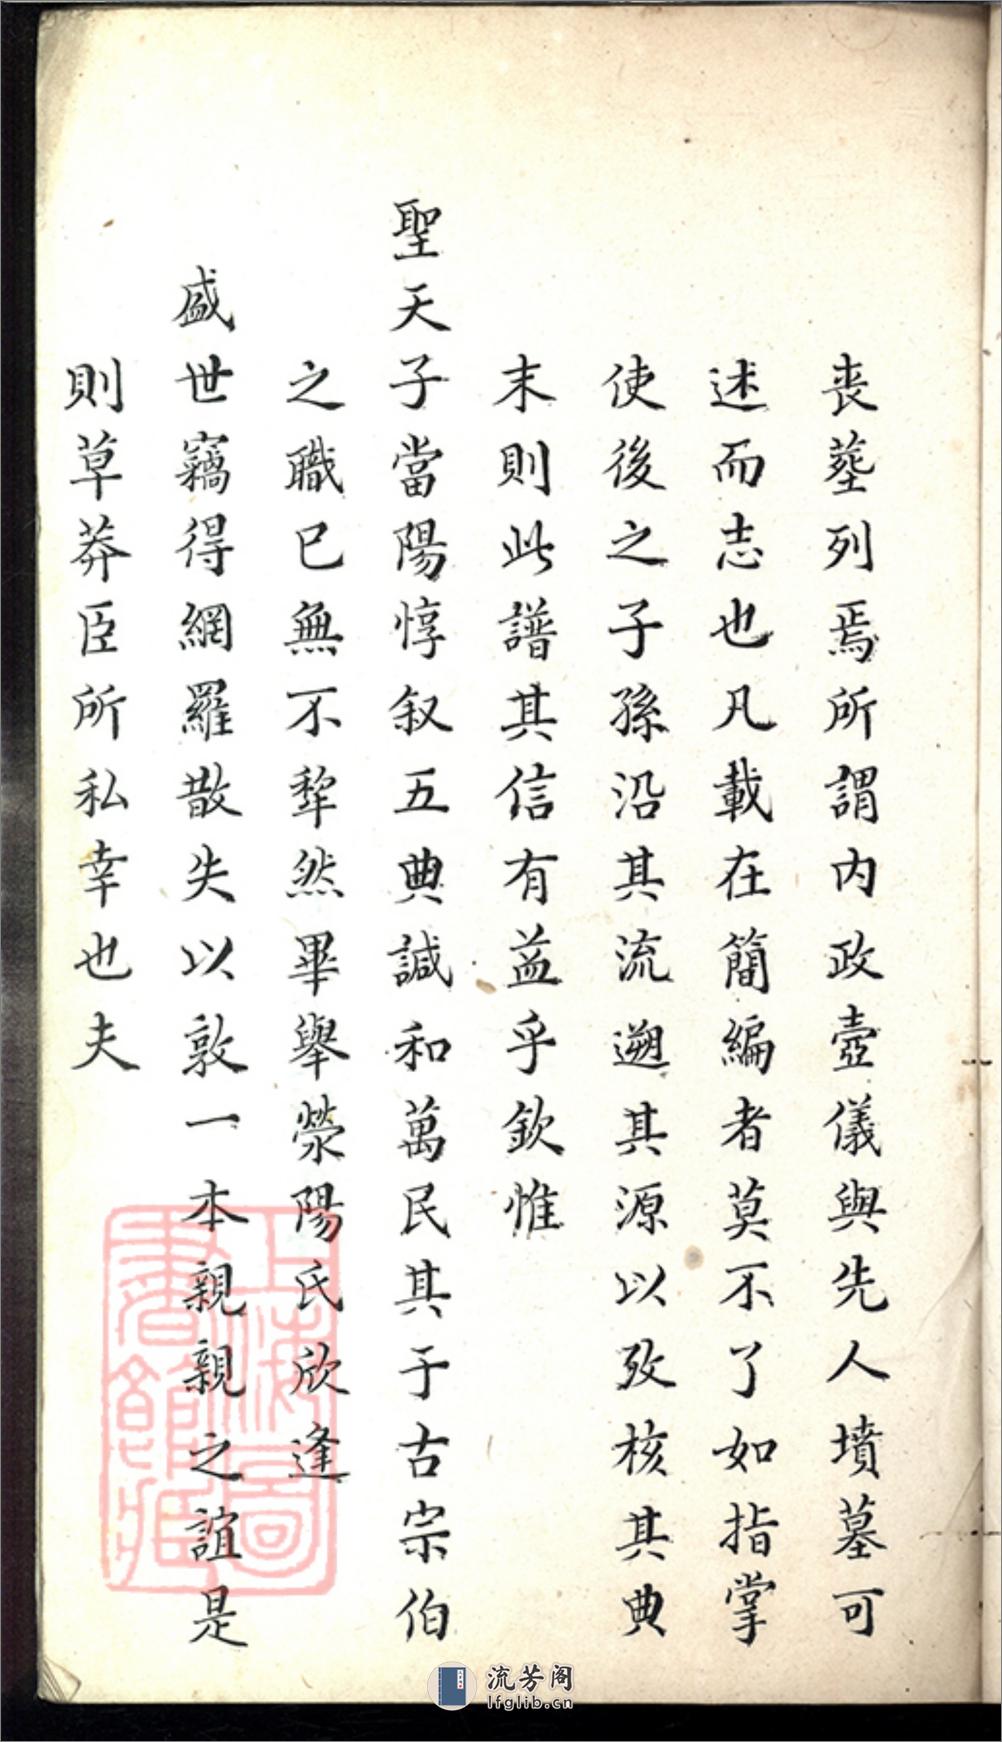 喪塟列焉所謂内政壼儀與先人墳墓可
述而志也凡載在簡編者莫不了如指掌
使後之子孫沿其流遡其源以攷核其典
末則此譜其信有益乎欽惟
聖天子當陽惇叙五典諴和萬民其于古宗伯
之職已無不犂然畢舉滎陽氏欣逢
盛世竊得網羅散失以敦一本親親之誼是
則草莽臣所私幸也夫
上海圖書館藏
流芳阁
lfglib.cn